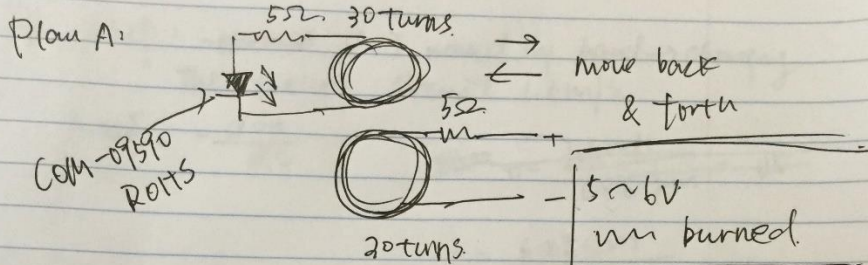 Plan A:
5Ω. 30 turns.
move back
& forth
5Ω.
+
COM-09590
ROHS
-
5~6V
burned.
20 turns.